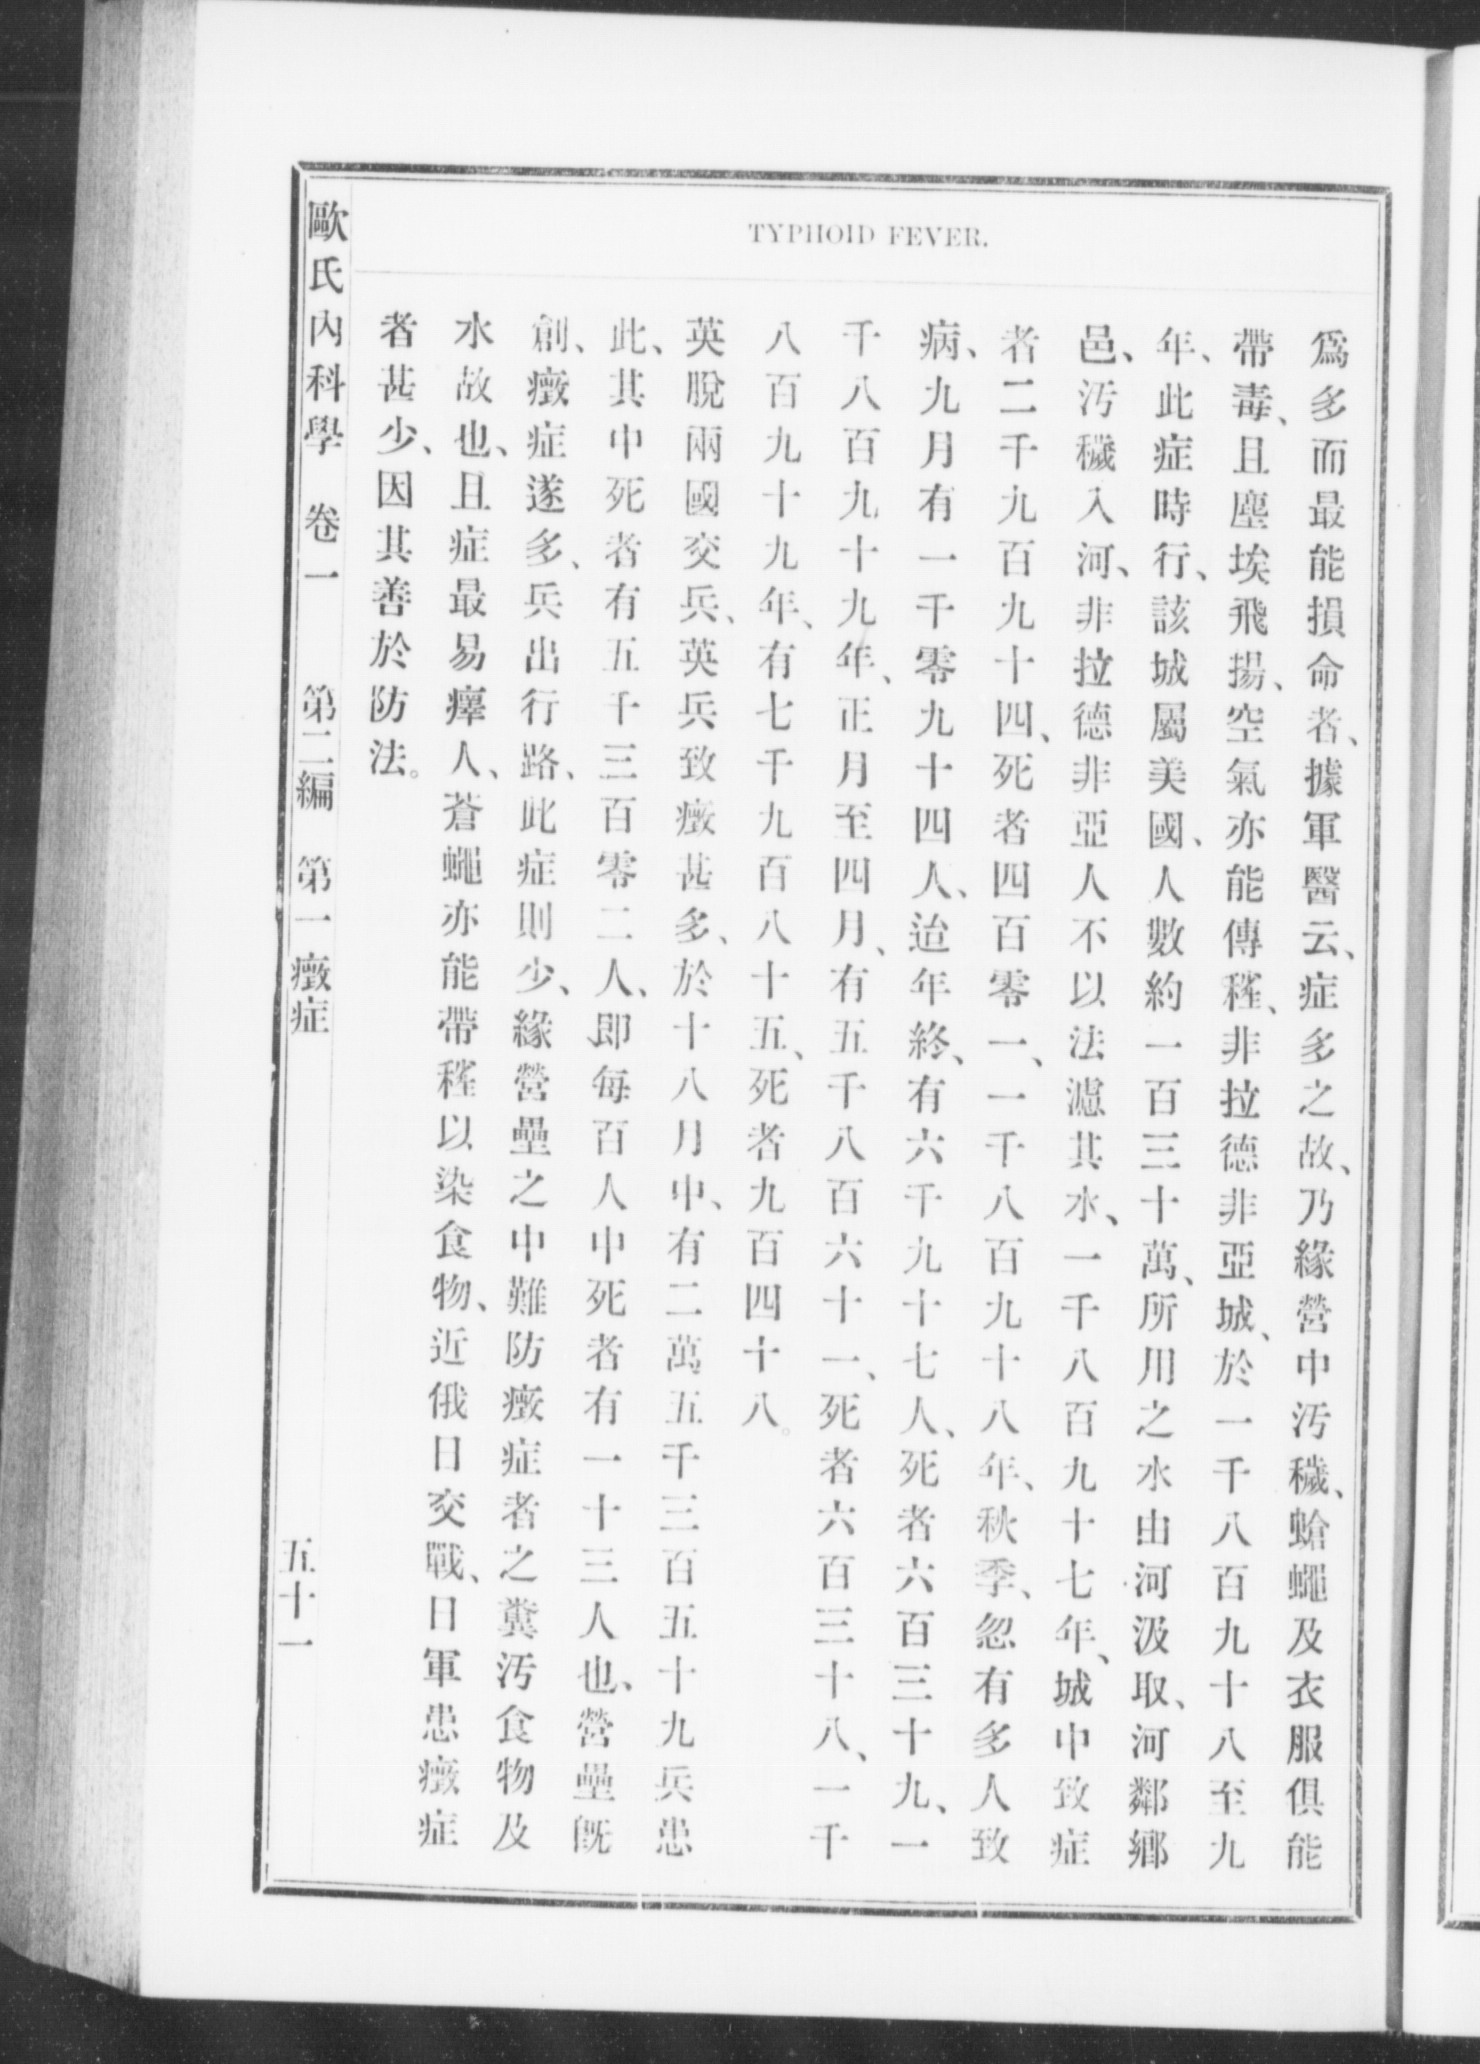 TYPHOID FEVER.
爲多而最能損命者、據軍醫云、症多之故、乃緣營中汚穢、蜡蠅及衣服俱能
帶毒、且塵埃飛揚、空氣亦能傳𥻅、非拉德非亞城、於一千八百九十八至九
年、此症時行、該城屬美國、人數約一百三十萬、所用之水由河汲取、河鄰鄉
邑、汚穢入河、非拉德非亞人不以法濾其水、一千八百九十七年、城中致症
者二千九百九十四、死者四百零一、一千八百九十八年、秋季、忽有多人致
病、九月有一千零九十四人、迨年終、有六千九十七人、死者六百三十九、一
千八百九十九年、正月至四月、有五千八百六十一、死者六百三十八、一千
八百九十九年、有七千九百八十五、死者九百四十八。
英脫兩國交兵、英兵致癥甚多、於十八月中、有二萬五千三百五十九兵患
此、其中死者有五千三百零二人、即每百人中死者有一十三人也、營壘旣
創、癥症遂多、兵出行路、此症則少、緣營壘之中難防癥症者之糞汚食物及
水故也、且症最易癉人、蒼蠅亦能帶以染食物、近俄日交戰、日軍患癥症
者甚少、因其善於防法。
歐氏內科學 卷一 第二編 第一癥症 五十一